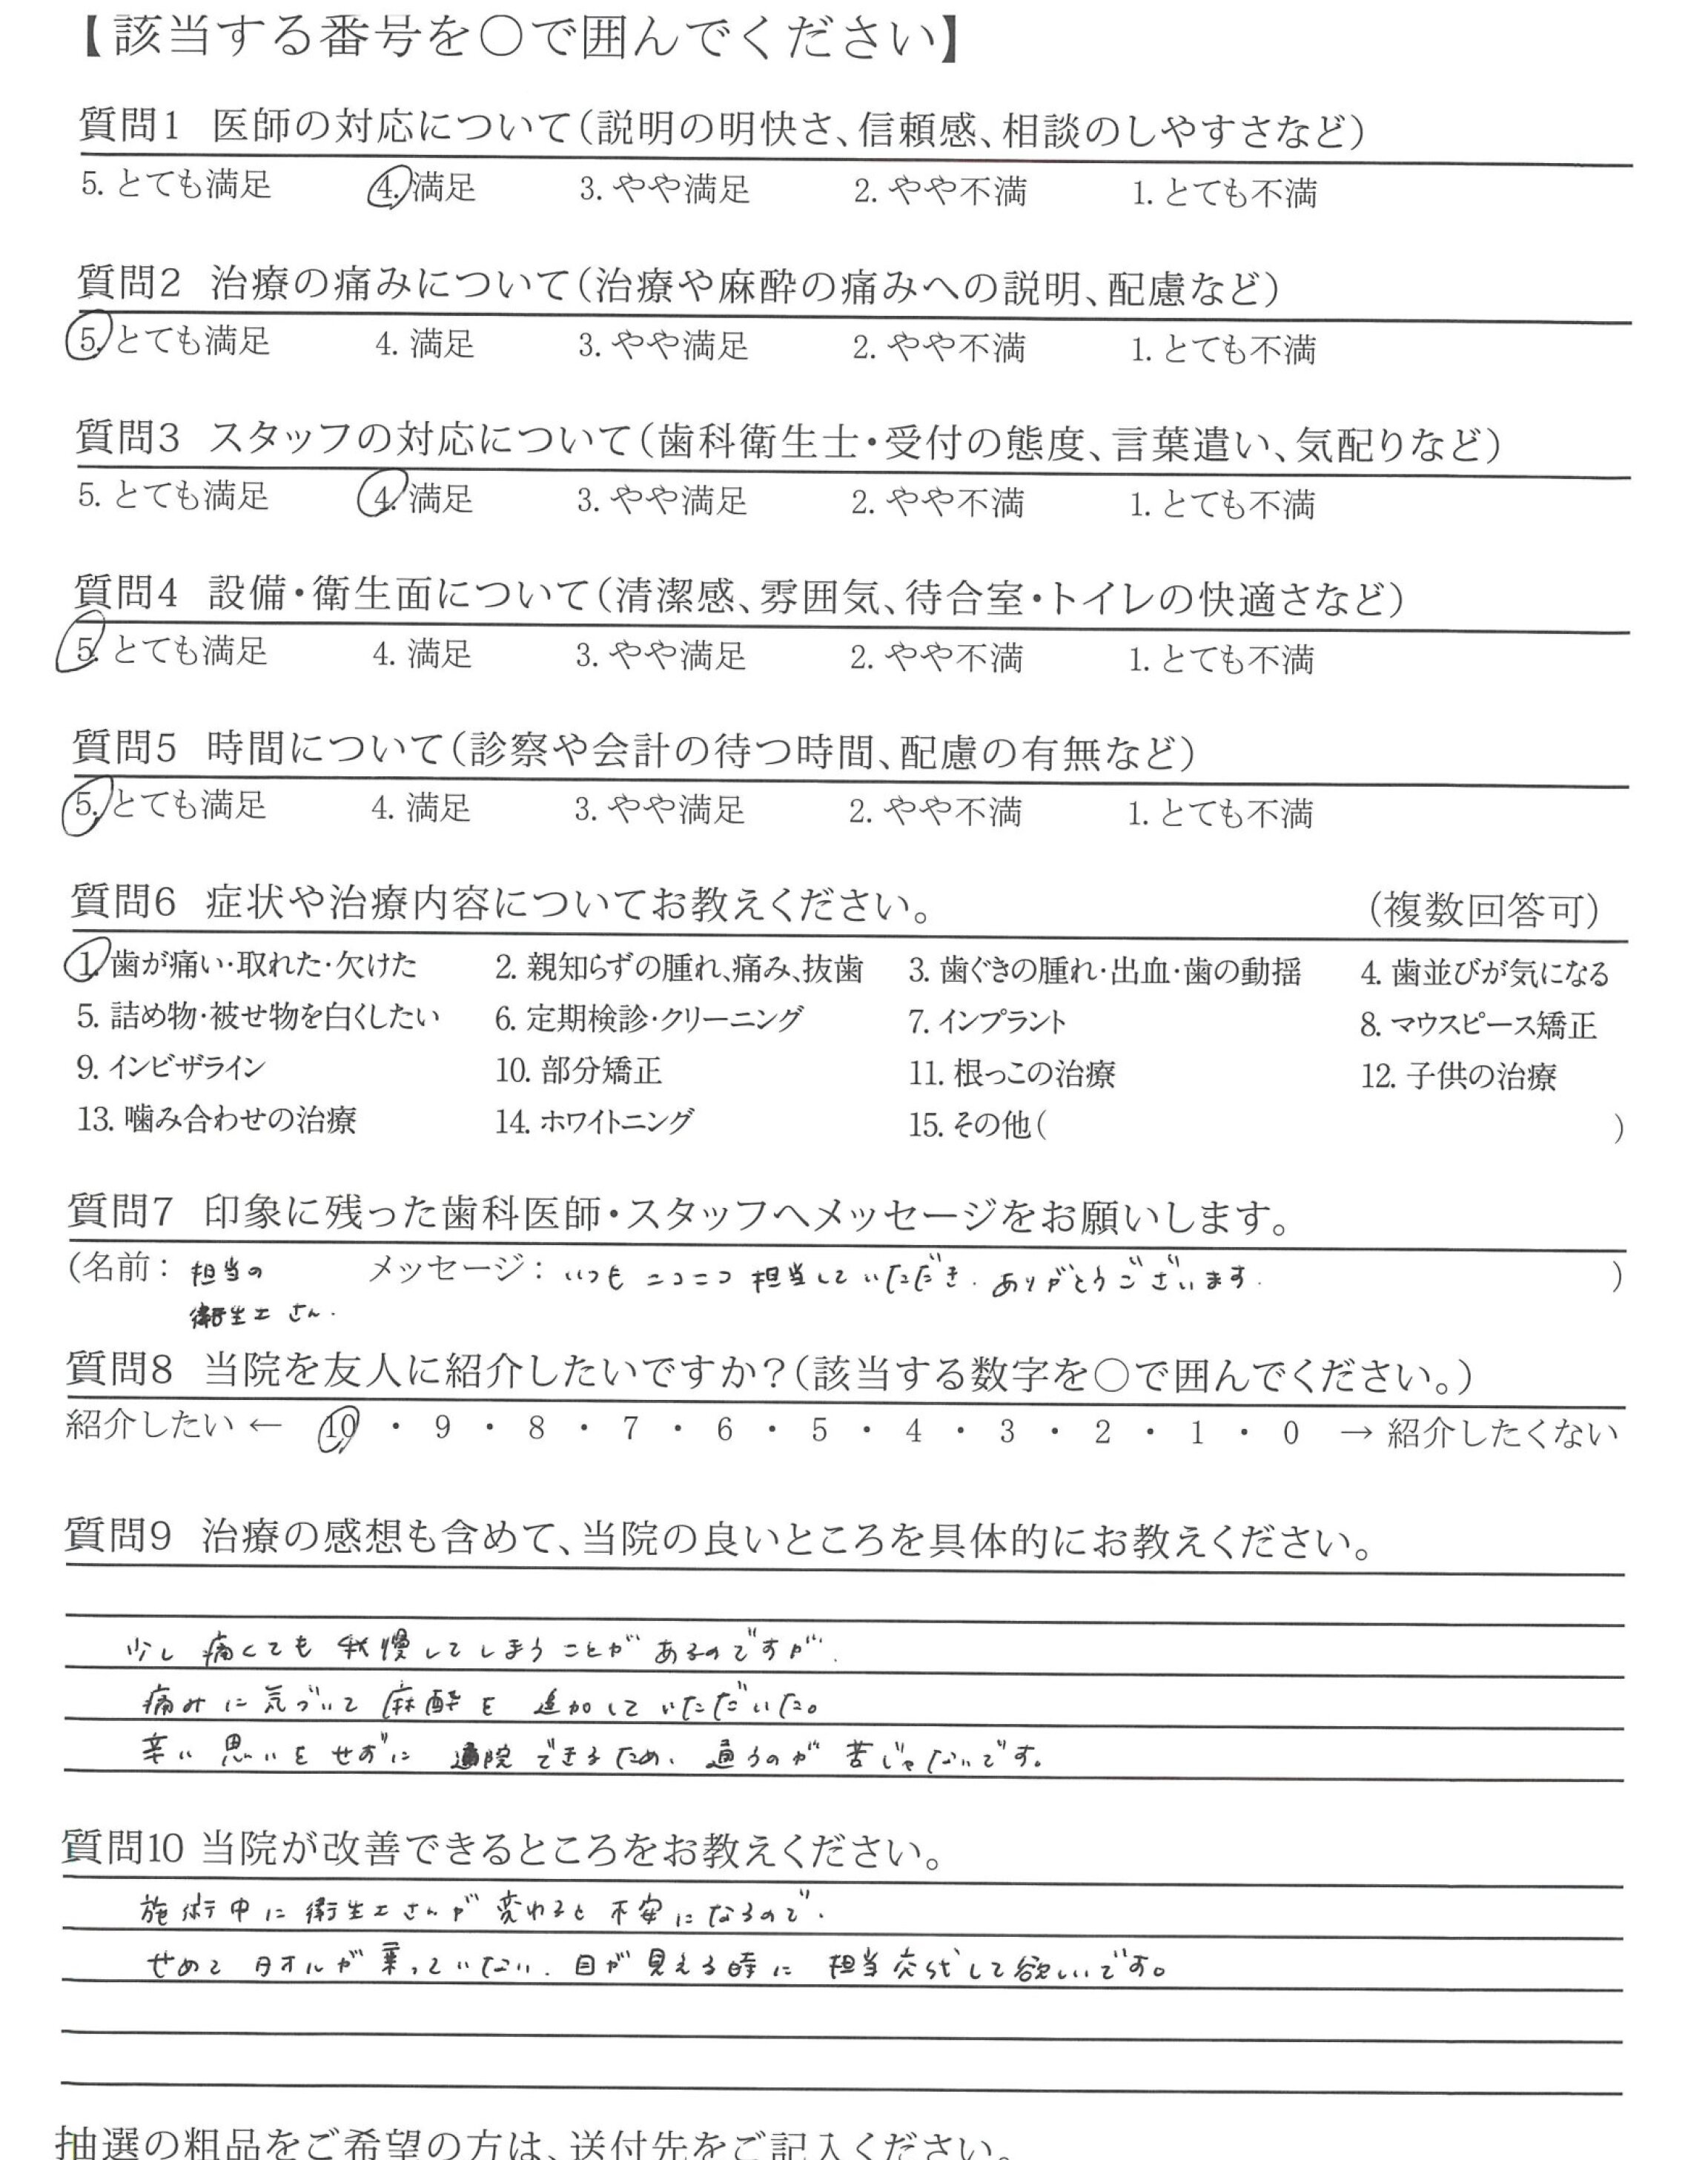 【該当する番号を〇で囲んでください】
質問1 医師の対応について(説明の明快さ、信頼感、相談のしやすさなど)
5. とても満足 4. 満足 3. やや満足 2. やや不満 1. とても不満
質問2 治療の痛みについて(治療や麻酔の痛みへの説明、配慮など)
5. とても満足 4. 満足 3. やや満足 2. やや不満 1. とても不満
質問3 スタッフの対応について(歯科衛生士・受付の態度、言葉遣い、気配りなど)
5. とても満足 4. 満足 3. やや満足 2. やや不満 1. とても不満
質問4 設備・衛生面について(清潔感、雰囲気、待合室・トイレの快適さなど)
5. とても満足 4. 満足 3. やや満足 2. やや不満 1. とても不満
質問5 時間について(診察や会計の待つ時間、配慮の有無など)
5. とても満足 4. 満足 3. やや満足 2. やや不満 1. とても不満
質問6 症状や治療内容についてお教えください。 (複数回答可)
1. 歯が痛い・取れた・欠けた 2. 親知らずの腫れ、痛み、抜歯 3. 歯ぐきの腫れ・出血・歯の動揺 4. 歯並びが気になる
5. 詰め物・被せ物を白くしたい 6. 定期検診・クリーニング 7. インプラント 8. マウスピース矯正
9. インビザライン 10. 部分矯正 11. 根っこの治療 12. 子供の治療
13. 噛み合わせの治療 14. ホワイトニング 15. その他( )
質問7 印象に残った歯科医師・スタッフへメッセージをお願いします。
(名前: 担当の メッセージ: いつもニコニコ担当していただき、ありがとうございます。 )
衛生士さん。
質問8 当院を友人に紹介したいですか?(該当する数字を〇で囲んでください。)
紹介したい ← 10 ・ 9 ・ 8 ・ 7 ・ 6 ・ 5 ・ 4 ・ 3 ・ 2 ・ 1 ・ 0 → 紹介したくない
質問9 治療の感想も含めて、当院の良いところを具体的にお教えください。
少し痛くても我慢してしまうことがあるのですが、
痛みに気づいて麻酔を追加していただいた。
辛い思いをせずに通院できるため、通うのが苦じゃないです。
質問10 当院が改善できるところをお教えください。
施術中に衛生士さんが変わると不安になるので、
せめてタオルが乗っていない、目が見える時に担当交代して欲しいです。
抽選の粗品をご希望の方は、送付先をご記入ください。